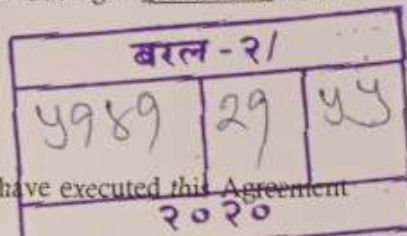 बरल - २/
५१४१ २१ ५५
have executed this Agreement
२०२०